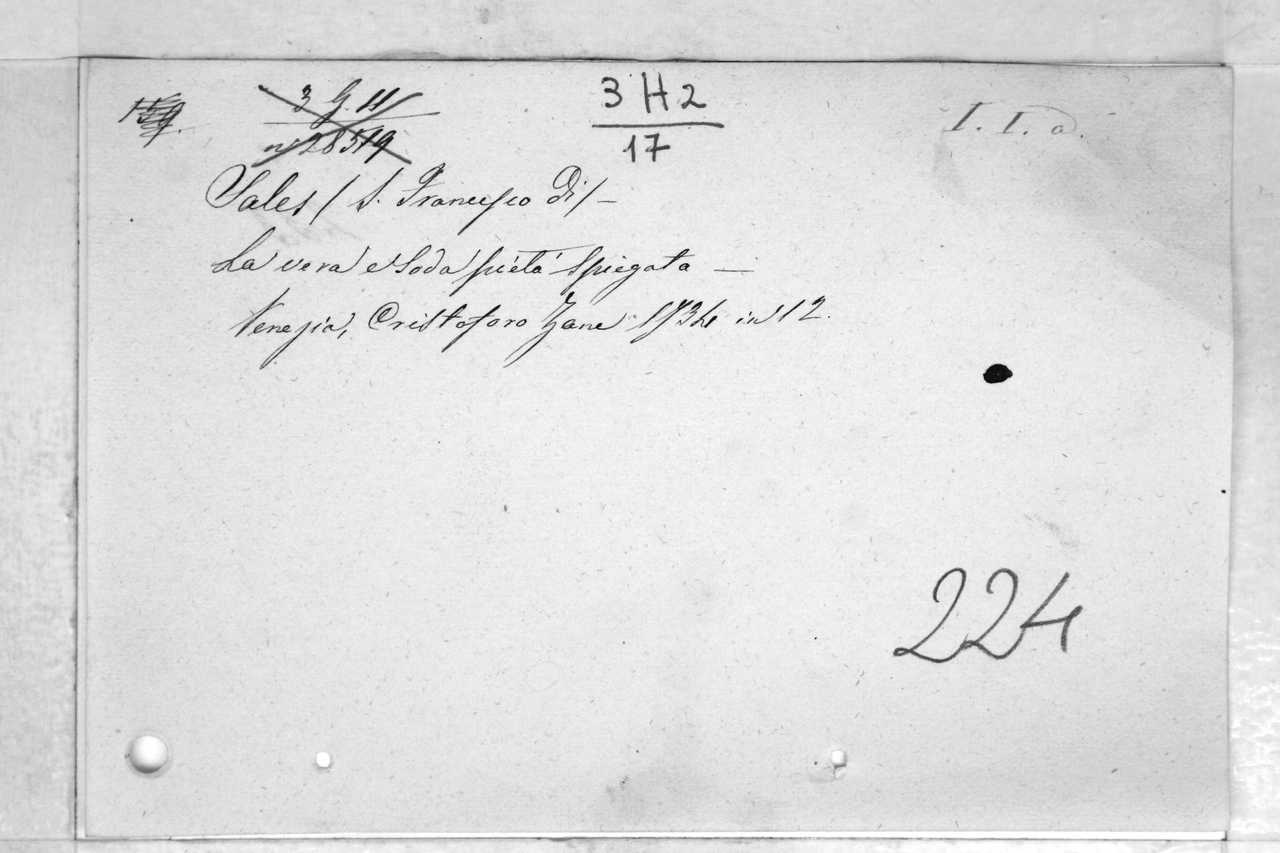 3 G. 11
n. 28519
3 H 2
17
I. I. a.
Sales / S. Francesco Di / —
La vera e soda pietà spiegata —
Venezia, Cristoforo Zane 1734 in 12.
224